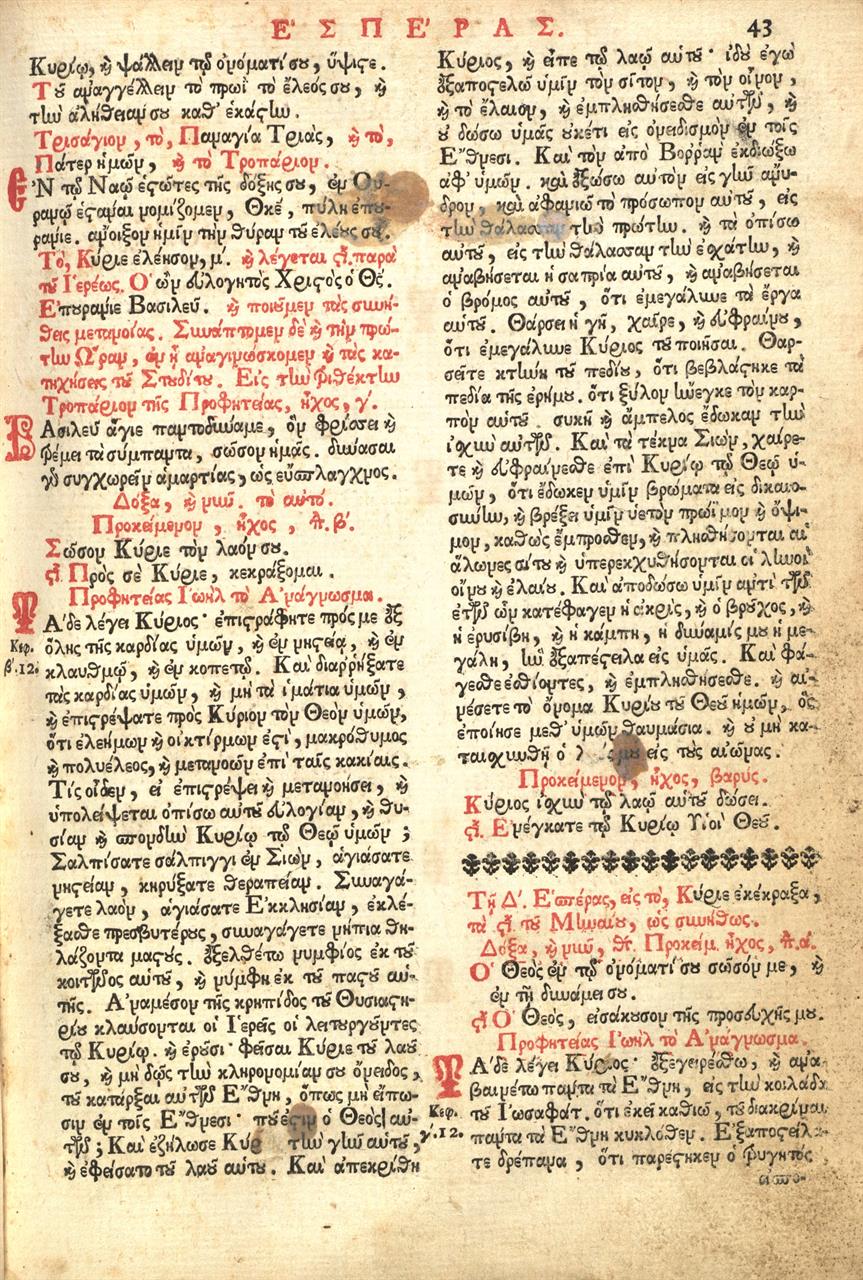 ΕʼΣΠΕʼΡΑΣ.
43
Κυρίῳ, καὶ ψάλλειν τῷ ὀνόματί σου, ὕψιστε.
Τοῦ ἀναγγέλλειν τὸ πρωῒ τὸ ἔλεός σου, καὶ
τὴν ἀλήθειάν σου καθ' ἑκάστην.
Τρισάγιον, τὸ, Παναγία Τριὰς, καὶ τὸ,
Πάτερ ἡμῶν, καὶ τὸ Τροπάριον.
ἘΝ τῷ Ναῷ ἑστῶτες τῆς δόξης σου, ἐν Οὐ-
ρανῷ ἑστάναι νομίζομεν, Θκέ, πύλη ἐπου-
ράνιε. ἄνοιξον ἡμῖν τὴν θύραν τοῦ ἐλέους σου.
Τὸ, Κύριε ἐλέησον, μ'. καὶ λέγεται στ. παρὰ
τοῦ Ἱερέως. Ὁ ὢν εὐλογητὸς Χριστὸς ὁ Θς.
Ἐπουράνιε Βασιλεῦ. καὶ ποιοῦμεν τὰς συνή-
θεις μετανοίας. Συνάπτομεν δὲ καὶ τὴν πρώ-
την Ὥραν, ἐν ᾗ ἀναγινώσκομεν καὶ τὰς κα-
τηχήσεις τοῦ Στουδίτου. Εἰς τὴν Τριθέκτην
Τροπάριον τῆς Προφητείας, ἦχος, γ'.
ΒΑσιλεῦ ἅγιε παντοδύναμε, ὃν φρίσσει καὶ
τρέμει τὰ σύμπαντα, σῶσον ἡμᾶς. δύνασαι
γὰρ συγχωρεῖν ἁμαρτίας, ὡς εὔσπλαγχνος.
Δόξα, καὶ νῦν. τὸ αὐτό.
Προκείμενον, ἦχος, πλ. β'.
Σῶσον Κύριε τὸν λαόν σου.
στ. Πρὸς σὲ Κύριε, κεκράξομαι.
Προφητείας Ἰωὴλ τὸ Ἀνάγνωσμα.
ΤΑ'δε λέγει Κύριος· ἐπιστράφητε πρός με ἐξ
Κεφ.
β'.12.
ὅλης τῆς καρδίας ὑμῶν, καὶ ἐν νηστείᾳ, καὶ ἐν
κλαυθμῷ, καὶ ἐν κοπετῷ. Καὶ διαρρήξατε
τὰς καρδίας ὑμῶν, καὶ μὴ τὰ ἱμάτια ὑμῶν,
καὶ ἐπιστρέψατε πρὸς Κύριον τὸν Θεὸν ὑμῶν,
ὅτι ἐλεήμων καὶ οἰκτίρμων ἐστὶ, μακρόθυμος
καὶ πολυέλεος, καὶ μετανοῶν ἐπὶ ταῖς κακίαις.
Τίς οἶδεν, εἰ ἐπιστρέψει καὶ μετανοήσει, καὶ
ὑπολείψεται ὀπίσω αὐτοῦ εὐλογίαν, καὶ θυ-
σίαν καὶ σπονδὴν Κυρίῳ τῷ Θεῷ ὑμῶν;
Σαλπίσατε σάλπιγγι ἐν Σιὼν, ἁγιάσατε
νηστείαν, κηρύξατε θεραπείαν. Συναγά-
γετε λαὸν, ἁγιάσατε Ἐκκλησίαν, ἐκλέ-
ξασθε πρεσβυτέρους, συναγάγετε νήπια θη-
λάζοντα μαστούς. ἐξελθέτω νυμφίος ἐκ τοῦ
κοιτῶνος αὐτοῦ, καὶ νύμφη ἐκ τοῦ παστοῦ αὐ-
τῆς. Ἀναμέσον τῆς κρηπίδος τοῦ Θυσιαστη-
ρίου κλαύσονται οἱ Ἱερεῖς οἱ λειτουργοῦντες
τῷ Κυρίῳ. καὶ ἐροῦσι· φεῖσαι Κύριε τοῦ λαοῦ
σου, καὶ μὴ δῷς τὴν κληρονομίαν σου ὄνειδος,
τοῦ κατάρξαι αὐτῶν Ἔθνη, ὅπως μὴ εἴπω-
σιν ἐν τοῖς Ἔθνεσι· ποῦ ἐστιν ὁ Θεὸς αὐ-
τῶν; Καὶ ἐζήλωσε Κύριος τὴν γῆν αὐτοῦ,
καὶ ἐφείσατο τοῦ λαοῦ αὐτοῦ. Καὶ ἀπεκρίθη
Κύριος, καὶ εἶπε τῷ λαῷ αὐτοῦ· ἰδοὺ ἐγὼ
ἐξαποστελῶ ὑμῖν τὸν σῖτον, καὶ τὸν οἶνον,
καὶ τὸ ἔλαιον, καὶ ἐμπλησθήσεσθε αὐτῶν, καὶ
οὐ δώσω ὑμᾶς οὐκέτι εἰς ὀνειδισμὸν ἐν τοῖς
Ἔθνεσι. Καὶ τὸν ἀπὸ Βορρᾶν ἐκδιώξω
ἀφ' ὑμῶν. καὶ ἐξώσω αὐτὸν εἰς γῆν ἄνυ-
δρον, καὶ ἀφανιῶ τὸ πρόσωπον αὐτοῦ, εἰς
τὴν θάλασσαν τὴν πρώτην. καὶ τὰ ὀπίσω
αὐτοῦ, εἰς τὴν θάλασσαν τὴν ἐσχάτην, καὶ
ἀναβήσεται ἡ σαπρία αὐτοῦ, καὶ ἀναβήσεται
ὁ βρόμος αὐτοῦ, ὅτι ἐμεγάλυνε τὰ ἔργα
αὐτοῦ. Θάρσει ἡ γῆ, χαῖρε, καὶ εὐφραίνου,
ὅτι ἐμεγάλυνε Κύριος τοῦ ποιῆσαι. Θαρ-
σεῖτε κτήνη τοῦ πεδίου, ὅτι βεβλάστηκε τὰ
πεδία τῆς ἐρήμου. ὅτι ξύλον ἤνεγκε τὸν καρ-
πὸν αὐτοῦ. συκῆ καὶ ἄμπελος ἔδωκαν τὴν
ἰσχὺν αὐτῶν. Καὶ τὰ τέκνα Σιὼν, χαίρε-
τε καὶ εὐφραίνεσθε ἐπὶ Κυρίῳ τῷ Θεῷ ὑ-
μῶν, ὅτι ἔδωκεν ὑμῖν βρώματα εἰς δικαιο-
σύνην, καὶ βρέξει ὑμῖν ὑετὸν πρώϊμον καὶ ὄψι-
μον, καθὼς ἔμπροσθεν, καὶ πλησθήσονται αἱ
ἅλωνες σίτου καὶ ὑπερεκχυθήσονται οἱ ληνοὶ
οἴνου καὶ ἐλαίου. Καὶ ἀποδώσω ὑμῖν ἀντὶ τῶν
ἐτῶν ὧν κατέφαγεν ἡ ἀκρὶς, καὶ ὁ βροῦχος, καὶ
ἡ ἐρυσίβη, καὶ ἡ κάμπη, ἡ δύναμίς μου ἡ με-
γάλη, ἣν ἐξαπέστειλα εἰς ὑμᾶς. Καὶ φά-
γεσθε ἐσθίοντες, καὶ ἐμπλησθήσεσθε. καὶ αἰ-
νέσετε τὸ ὄνομα Κυρίου τοῦ Θεοῦ ἡμῶν, ὃς
ἐποίησε μεθ' ὑμῶν θαυμάσια. καὶ οὐ μὴ κα-
ταισχυνθῇ ὁ λαός μου εἰς τοὺς αἰῶνας.
Προκείμενον, ἦχος, βαρύς.
Κύριος ἰσχὺν τῷ λαῷ αὐτοῦ δώσει.
στ. Ἐνέγκατε τῷ Κυρίῳ Υἱοὶ Θεοῦ.
Τῇ Δ'. Ἑσπέρας, εἰς τὸ, Κύριε ἐκέκραξα,
τὰ στ. τοῦ Μηναίου, ὡς συνήθως.
Δόξα, καὶ νῦν, Θκ. Προκείμ. ἦχος, πλ. α'.
Ὁ Θεὸς ἐν τῷ ὀνόματί σου σῶσόν με, καὶ
ἐν τῇ δυνάμει σου.
στ. Ὁ Θεὸς, εἰσάκουσον τῆς προσευχῆς μου.
Προφητείας Ἰωὴλ τὸ Ἀνάγνωσμα.
ΤΑ'δε λέγει Κύριος· ἐξεγειρέσθω, καὶ ἀνα-
βαινέτω πάντα τὰ Ἔθνη, εἰς τὴν κοιλάδα
Κεφ.
γ'.12.
τοῦ Ἰωσαφάτ. ὅτι ἐκεῖ καθιῶ, τοῦ διακρῖναι
πάντα τὰ Ἔθνη κυκλόθεν. Ἐξαποστείλα-
τε δρέπανα, ὅτι παρέστηκεν ὁ τρυγητός